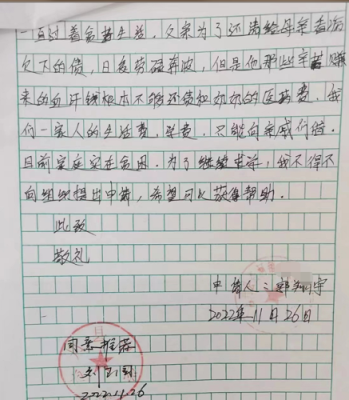 一直过着贫苦生活，父亲为了还清给母亲看病
欠下的债，日夜劳碌奔波，但是他那些辛苦赚
来的血汗钱根本不够还债和奶奶的医药费，我
们一家人的生活费，学费，只能向亲戚们借。
目前家庭实在贫困。为了继续求学，我不得不
向组织提出申请，希望可以获得帮助。
此致
敬礼
申请人：
2022年11月26日
同意推荐
2022.11.26